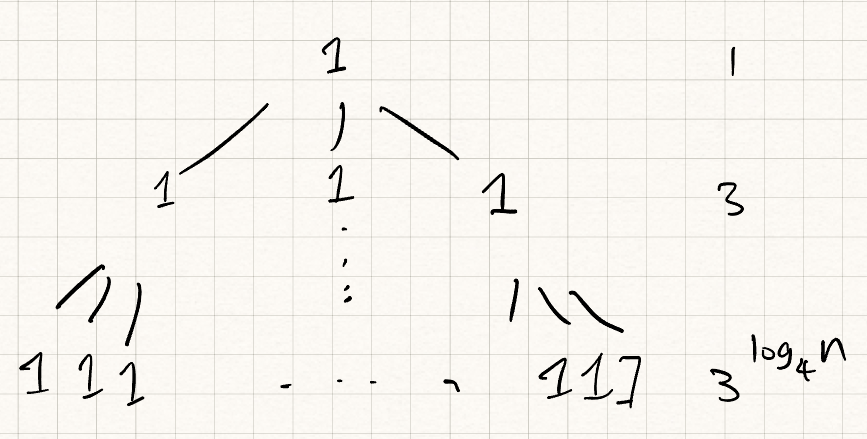 1 1
1 1 1 3
1 1 1 . . . . 1 1 1 3^log₄n